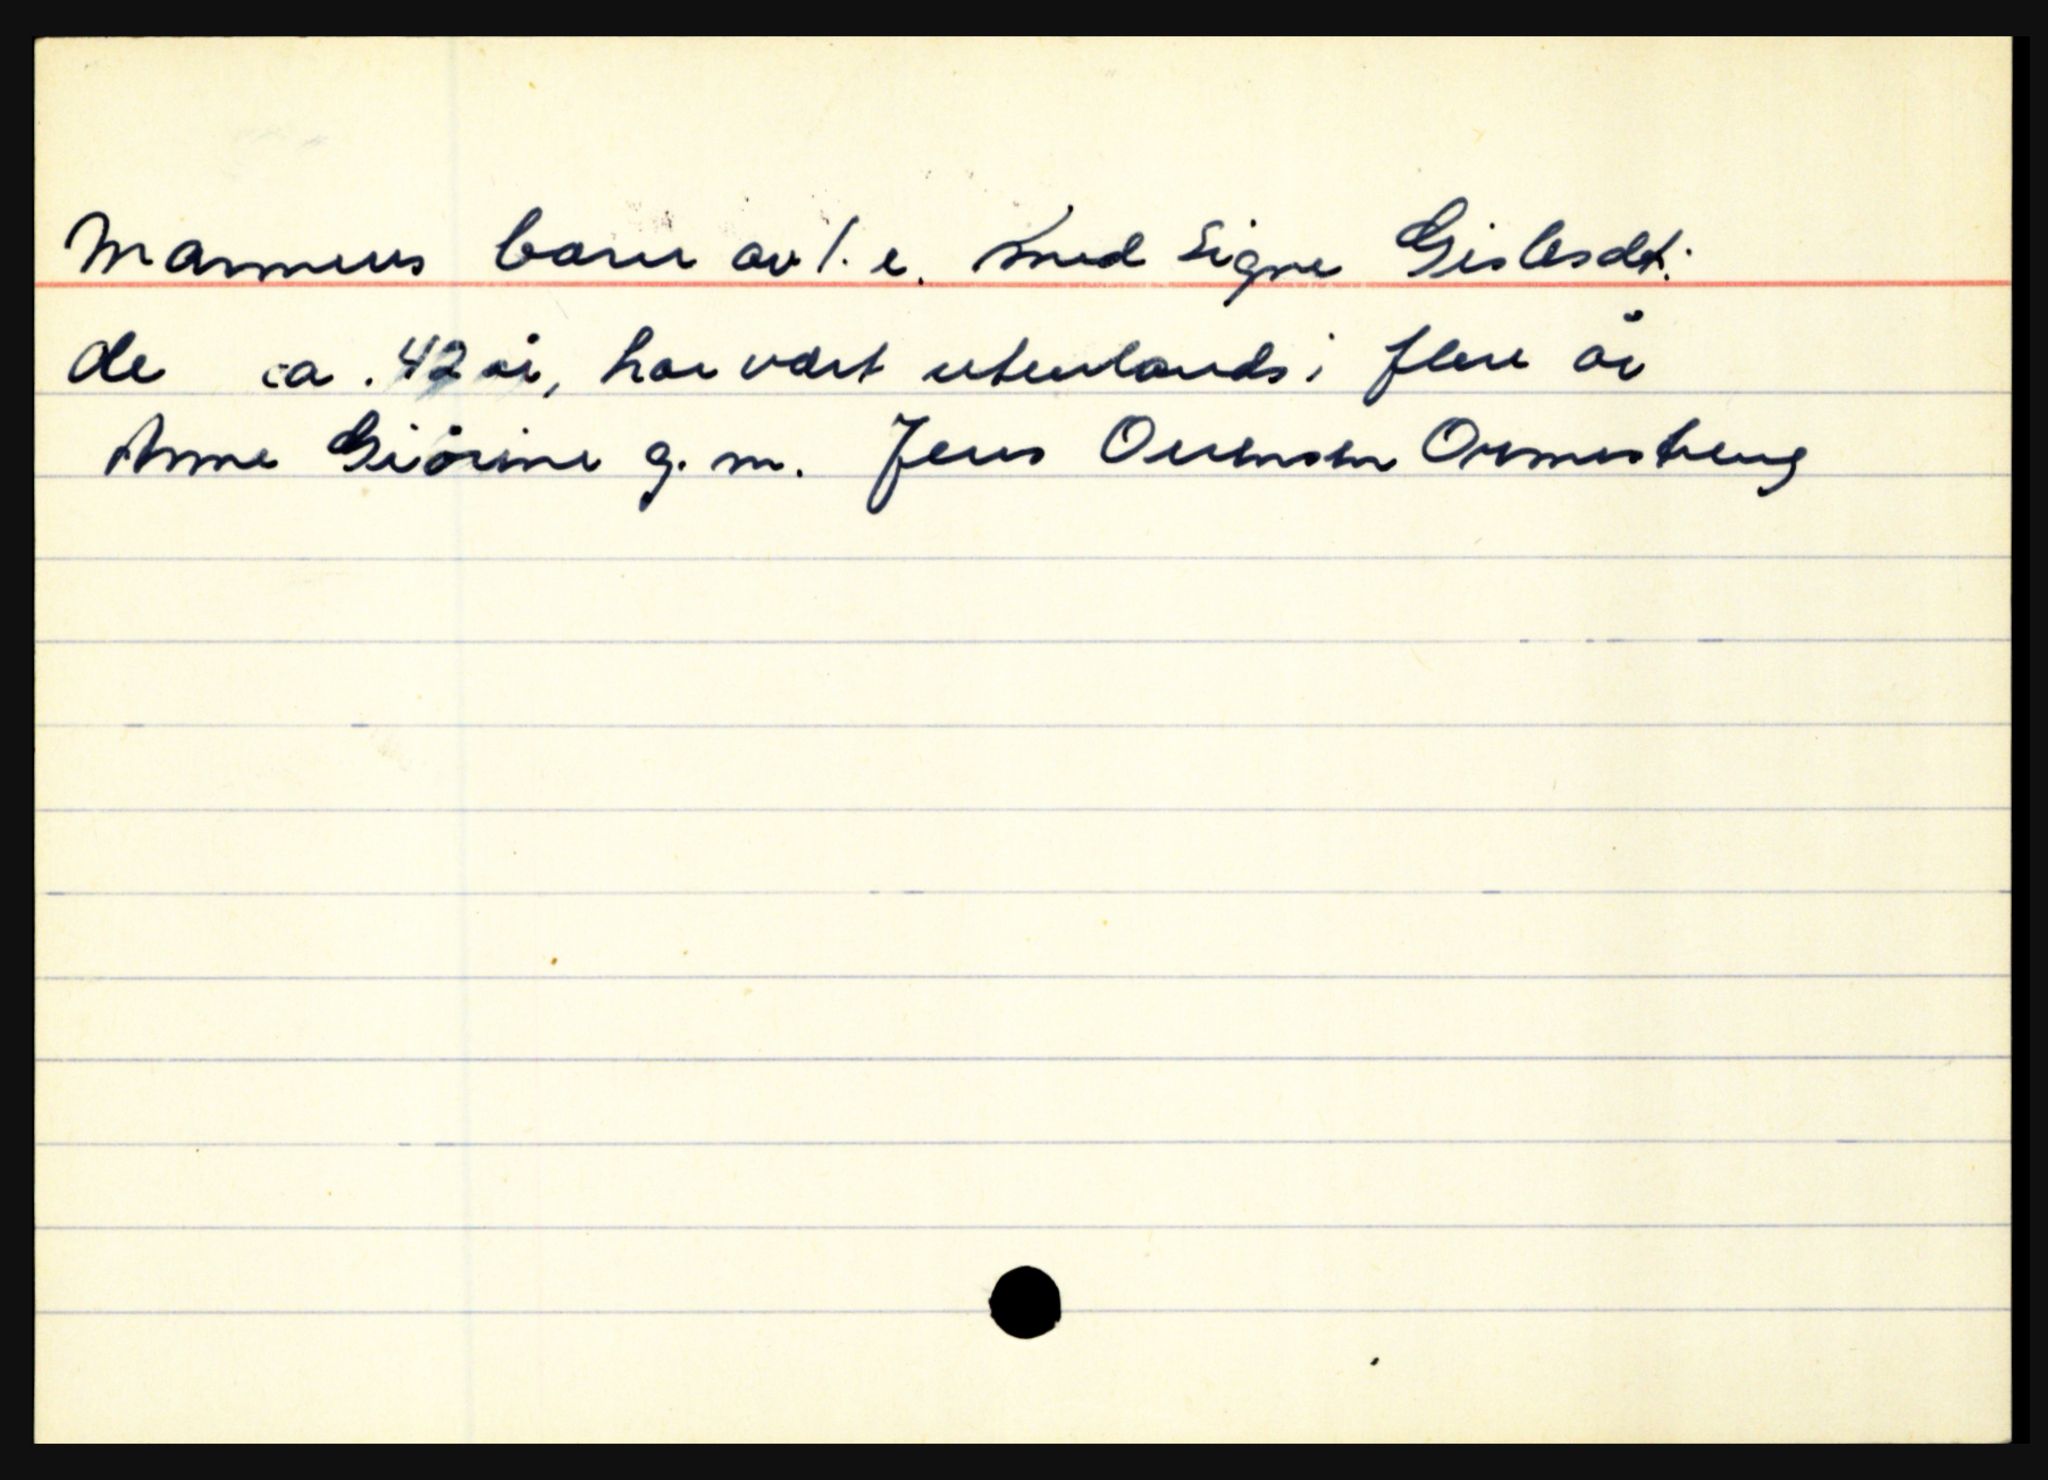 Mannens barn av 1. e. med Signe Gislesdt.
de ca. 42 år, har vært utenlands i flere år
Anne Giörine g. m. Jens Orensen Ormestreng